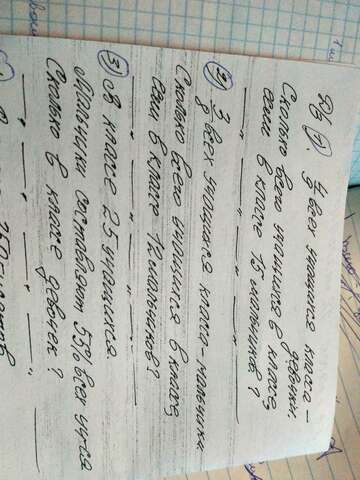 № 1). 4/9 всех учащихся класса -
девочки
Сколько всего учащихся в классе,
если в классе 15 мальчиков?
2) 3/8 всех учащихся класса - мальчики
Сколько всего учащихся в классе,
если в классе 12 мальчиков?
3) В классе 25 учащихся
Мальчики составляют 55% всех уч-ся
Сколько в классе девочек?